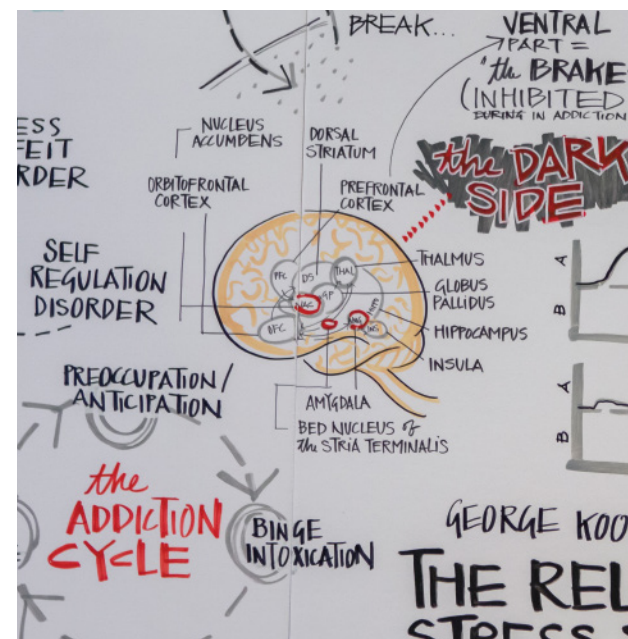 BREAK...
VENTRAL
PART =
"the BRAKE
(INHIBITED
DURING IN ADDICTION
the DARK
SIDE
ESS
FEIT
RDER
NUCLEUS
ACCUMBENS
DORSAL
STRIATUM
ORBITOFRONTAL
CORTEX
PREFRONTAL
CORTEX
SELF
REGULATION
DISORDER
PFC
DS
THAL
GP
NAC
OFC
THALMUS
GLOBUS
PALLIDUS
HIPPOCAMPUS
INSULA
AMYGDALA
BED NUCLEUS of
the STRIA TERMINALIS
A
B
A
B
PREOCCUPATION/
ANTICIPATION
the
ADDICTION
CYCLE
BINGE
INTOXICATION
GEORGE KOO
THE REL
STRESS